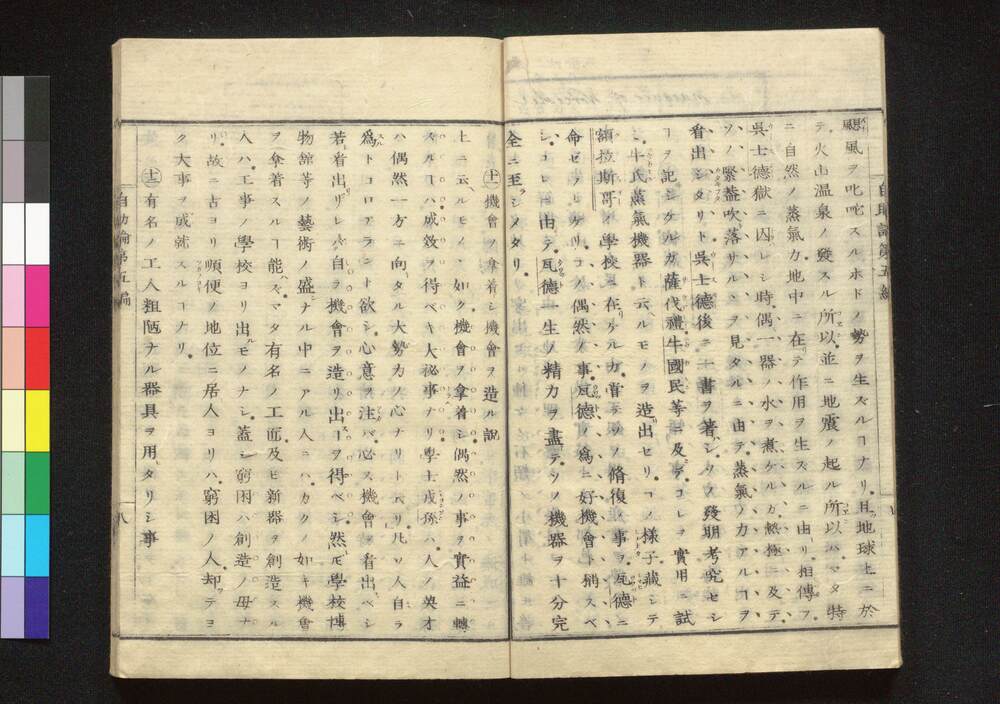 颶風ヲ叱咤スルホドノ勢ヲ生ズルヿナリ且地球上ニ於
テ火山温泉ノ發スル所以並ニ地震ノ起ル所以ハマタ特
ニ自然ノ蒸氣力地中ニ在テ作用ヲ生スルニ由リ相傳フ
呉士德獄ニ囚レシ時偶一器ノ水ヲ煮ケルガ熱極ニ及テ
ソノ緊蓋吹落サルヽヲ見タルニ由テ蒸氣ノ力アルヿヲ
看出シタリト呉士德後ニ一書ヲ著ハシソノ發明考究セシ
ヿヲ記シケルガ薩伐禮牛國民等ニ及デコレヲ實用ニ試
ミ牛氏蒸氣機器ト云ヘルモノヲ造出セリコノ様子藏シテ
額拉斯哥ノ學校ニ在ケルガ嘗テソノ脩復ノ事ヲ瓦德ニ
命ゼラレケリコノ偶然ノ事瓦德ノ爲ニ好機會ト稱スベ
シコレニ由テ瓦德一生ノ精力ヲ盡テソノ機器ヲ十分完
全ニ至ラシメタリ
十一 機會ノ拿着シ機會ヲ造ル説
上ニ云ヘルモノヽ如ク機會ヲ拿着シ偶然ノ事ヲ實益ニ轉
ズルヿハ成效ヲ得ベキ大祕事ナリ學士戎孫ハ人ノ英才
ハ偶然一方ニ向タル大勢力ノ心ナリトベリ凡ソ人自ラ
爲トコロアラント欲シ心意ヲ注バ必ズ機會ヲ看出ベシ
若看出ザレバ自ラ機會ヲ造リ出ヿヲ得ベシ然ドモ學校博
物館等ノ藝術ノ盛ナル中ニアル人ニハカクノ如キ機會
ヲ拿着スルヿ能ハズマタ有名ノ工面及ビ新器ヲ創造スル
人ハ工事ノ學校ヨリ出ルモノナシ蓋シ窮困ハ創造ノ母ナ
リ故ニ古ヨリ順便ノ地位ニ居人ヨリハ窮困ノ人却テヨ
ク大事ヲ成就スルヿナリ
十二 有名ノ工人粗陋ナル器具ヲ用タリシ事
自助論第五編
八